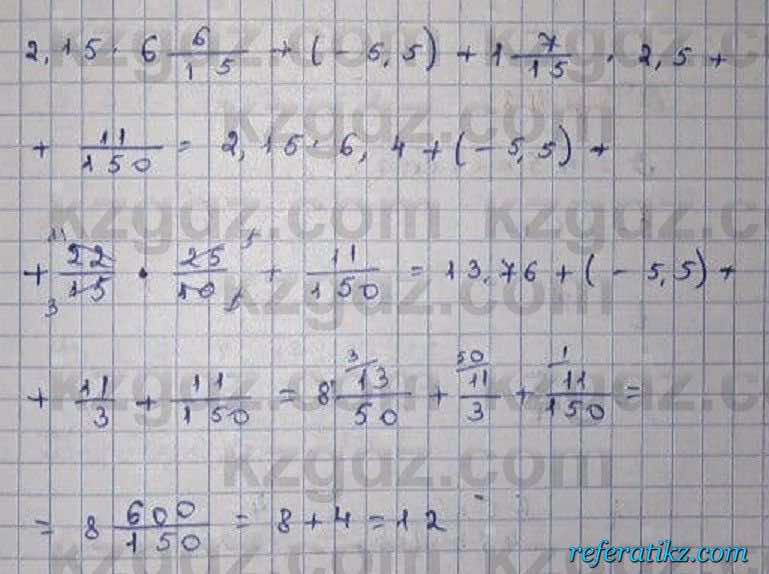 2,15 · 6 6/15 + (-5,5) + 1 7/15 · 2,5 +
+ 11/150 = 2,15 · 6,4 + (-5,5) +
+ 22/15 · 25/10 + 11/150 = 13,76 + (-5,5) +
+ 11/3 + 11/150 = 8 13/50 + 11/3 + 11/150 =
= 8 600/150 = 8 + 4 = 12
kzgdz.com
referatikz.com